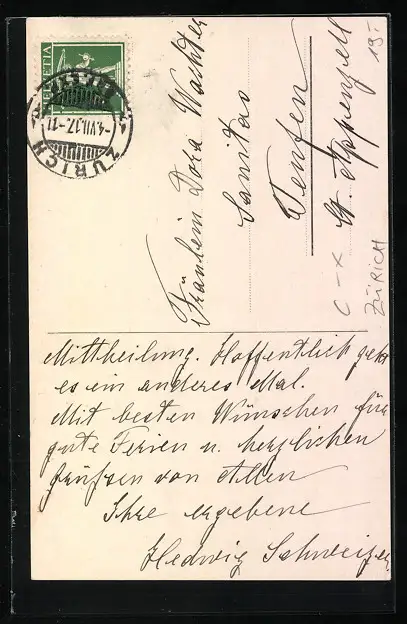 HELVETIA
ZÜRICH
-4.VII.17.-11
Fräulein Dora Wachter
Sanitas
Teufen
Kt. Appenzell
19.-
C-X
ZÜRICH
Mittheilung. Hoffentlich geht
es ein anderes Mal.
Mit besten Wünschen für
gute Ferien u. herzlichen
Grüßen von Allen
Ihre ergebene
Hedwig Schweizer